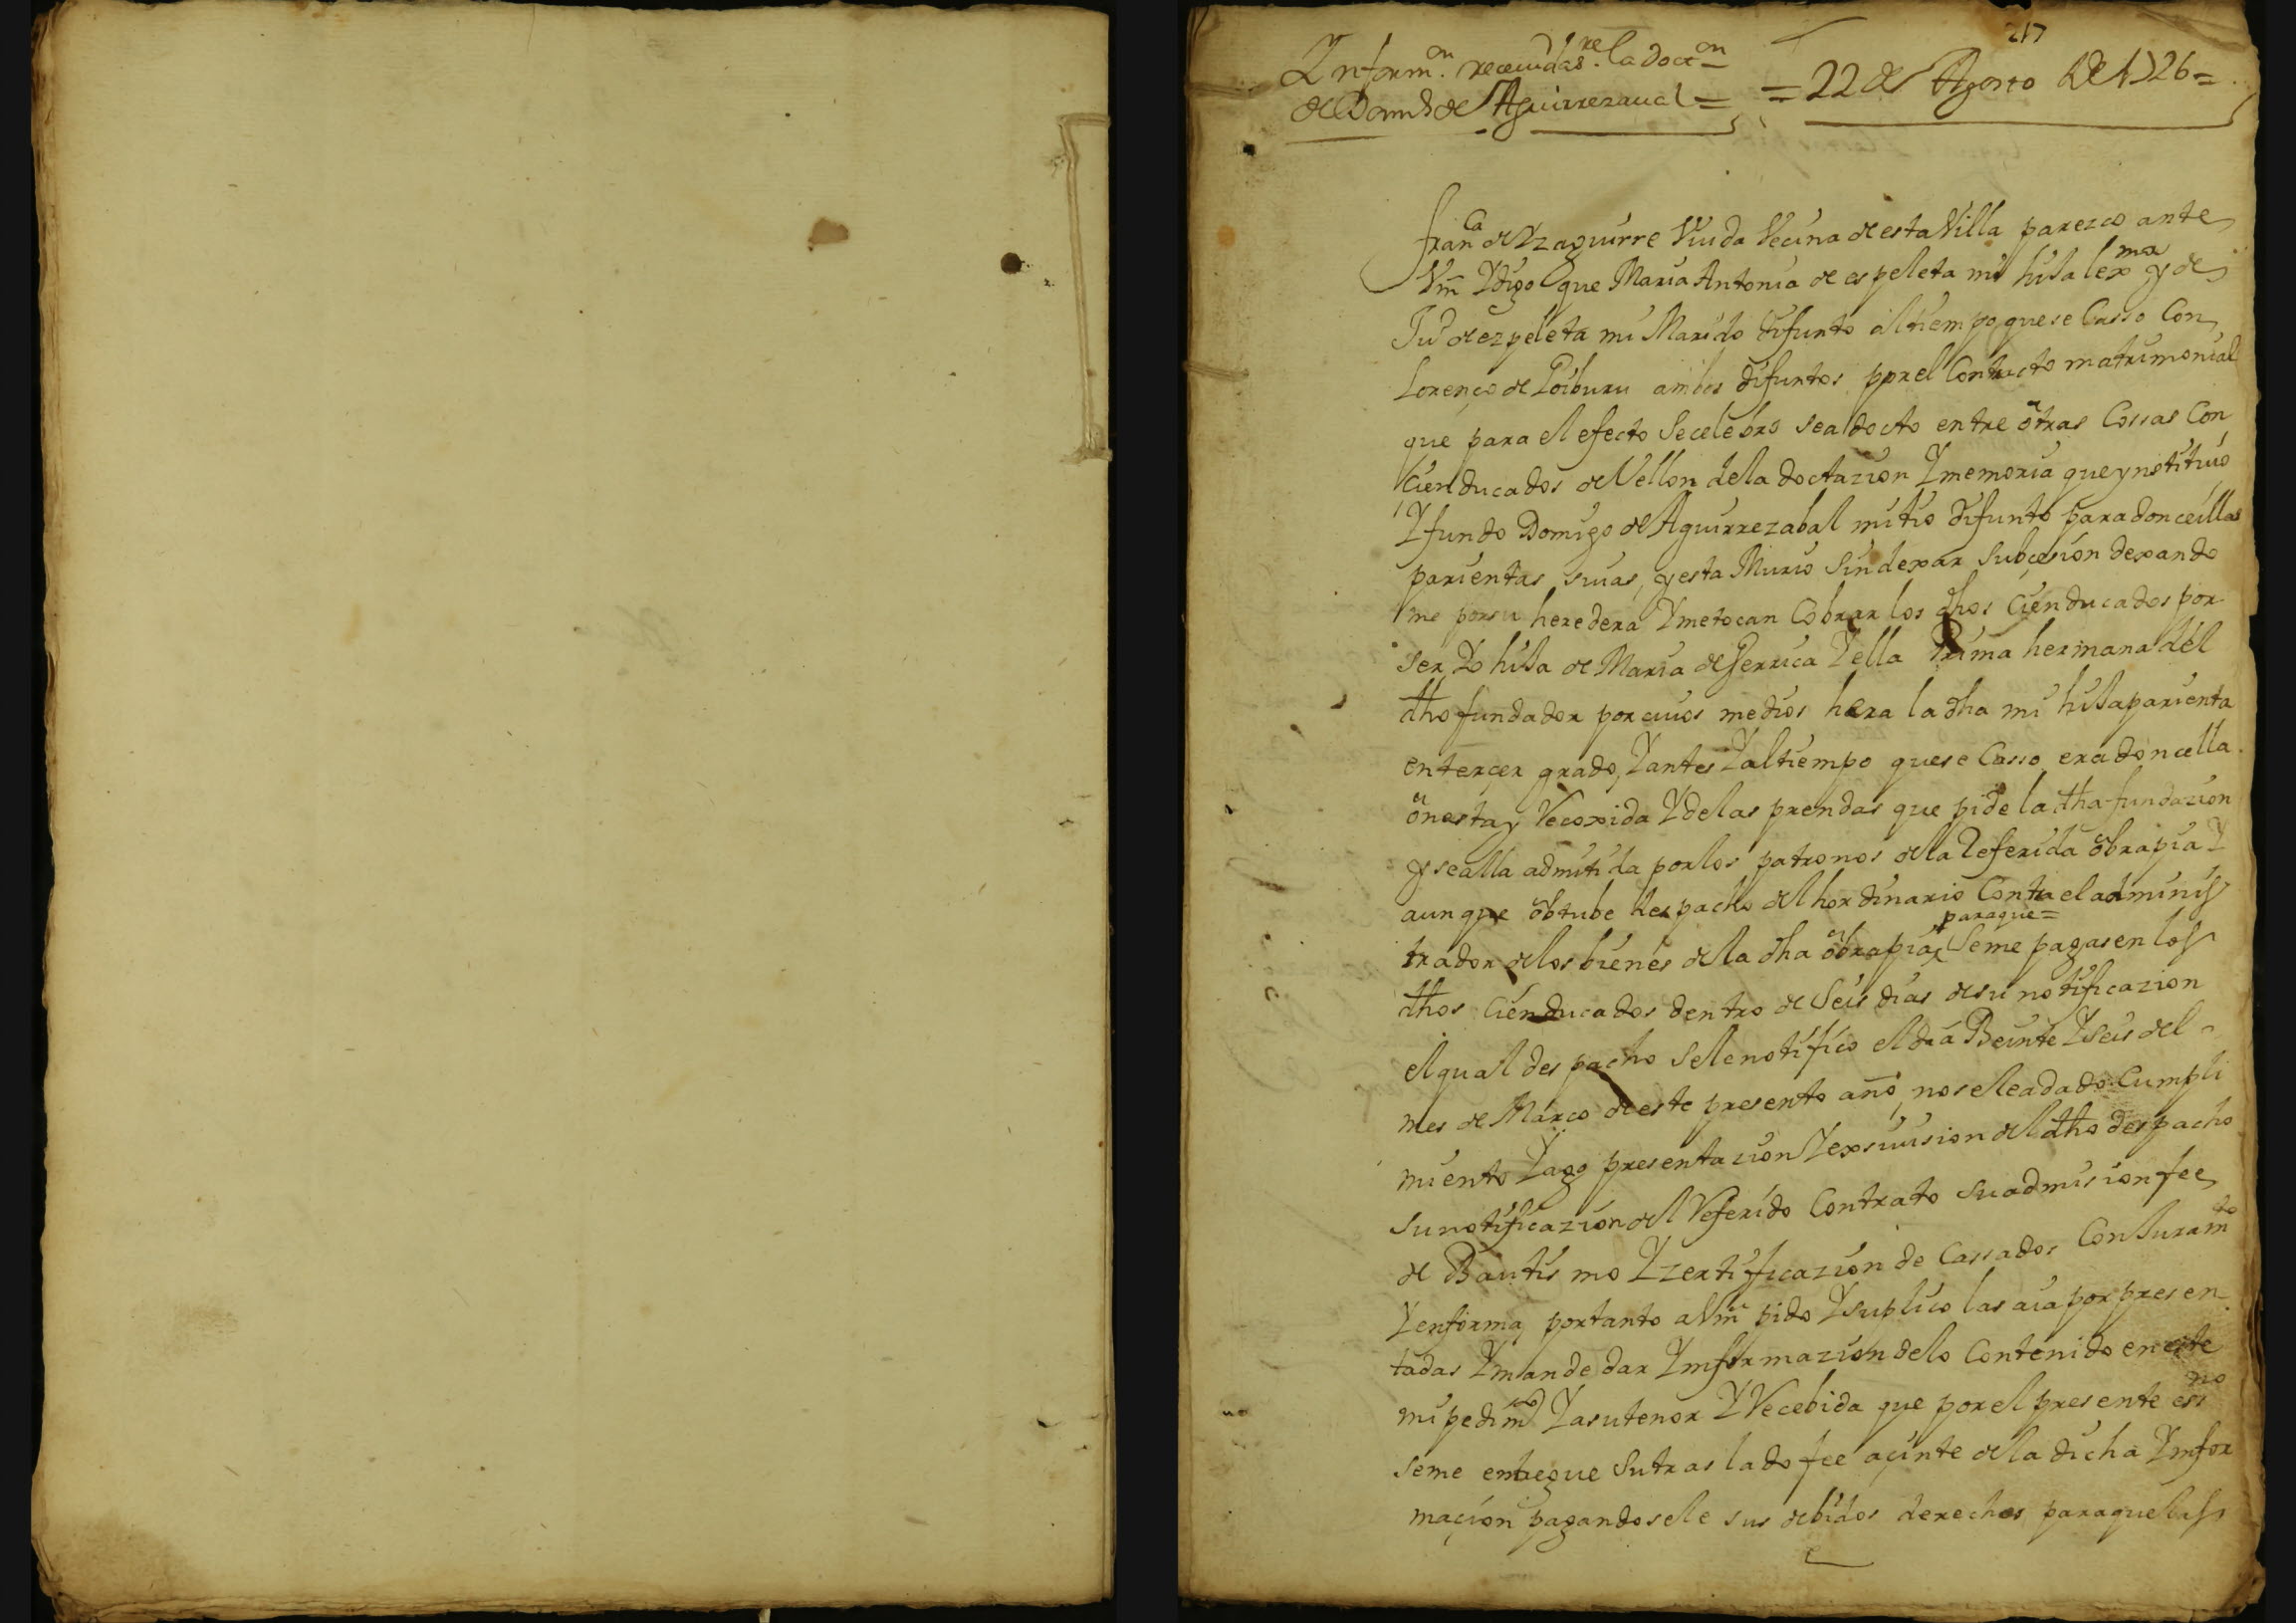 217
Ynform.on receuidas re. la doct.on
de Dom.o de Aguirrezaual = = 22 de Agosto de 1726 =
fran.ca de Yzaguirre Viuda Vecina de esta Villa parezco ante
Vm̃ Y digo que Maria Antonia de espeleta mi hiJa lex.ma y de
Ju.o de ezpeleta mi Marido difunto al tiempo que se Casso Con
Lorenço de Goiburu ambos difuntos por el Contracto matrimonial
que para el efecto Se celebro se a docto entre otras Cossas Con
Cien ducados de Vellon de la doctazion Y memoria que ynstituio
Y fundo Domigo de Aguirrezabal mi tio difunto para donceillas
parientas suias, y esta Murio Sin dexar Subçesion dexando
me por su heredera Y me tocan Cobrar los dhos Cien ducados por
ser Yo hiJa de Maria de Gerrica Y ella Prima hermana del
dho fundador por cuios medios hera la dha mi hiJa parienta
en terçer grado, Y antes Y al tiempo que se Casso era doncella
onesta y Recoxida Y de las prendas que pide la dha fundazion
y se alla admitida por los patronos de la Referida obra pia Y
aun que obtube despacho del hordinario Contra el adminis
trador de los bienes de la dha obra pia, para que = Se me pagasen los
dhos Cien ducados dentro de Seis dias de su notificazion
el qual despacho Se le notifico el dia Beinte Y seis del
mes de Março de este presente año, no se le a dado Cumpli
miento Y ago presentazion Y exsiuision del dho despacho
su notificazion del Referido Contrato su admision fee
de Bautismo Y zertificazion de Cassados Con Juram.to
Y en forma, por tanto a Vm̃ pido Y suplico las aia por presen
tadas Y mande dar Ymformazion de lo Contenido en este
mi pedim.to Y a su tenor Y Recebida que por el presente ess.no
se me entregue Su traslado fee açinte de la dicha Ymfor
maçion pagandosele sus debidos derechos para que las